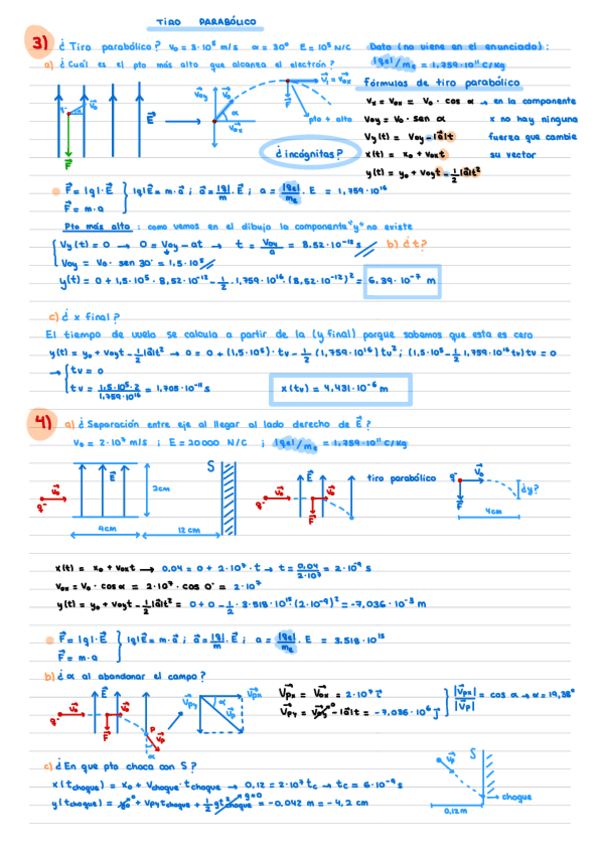 TIRO PARABÓLICO
3) ¿Tiro parabólico? v₀ = 3·10⁵ m/s α = 30° E = 10⁵ N/C Dato (no viene en el enunciado):
a) ¿Cuál es el pto más alto que alcanza el electrón? |qe|/me = 1,759·10¹¹ C/kg
fórmulas de tiro parabólico
Vx = Vox = Vo · cos α → en la componente
Voy = Vo · sen α x no hay ninguna
Vy(t) = Voy - |a|t fuerza que cambie
x(t) = xo + Voxt su vector
y(t) = yo + Voyt - 1/2|a|t²
V₁ = Vox
Voy
Vo
Vox
E
F
pto + alto
¿incógnitas?
F = |q|·E } |q|E = m·a ; a = |q|/m · E ; a = |qe|/me · E = 1,759·10¹⁶
F = m·a
Pto más alto: como vemos en el dibujo la componente "y" no existe
Vy(t) = 0 → 0 = Voy - at → t = Voy/a = 8.52·10⁻¹² s b) ¿t?
Voy = Vo · sen 30° = 1,5·10⁵
y(t) = 0 + 1,5·10⁵ · 8,52·10⁻¹² - 1/2 · 1,759·10¹⁶ · (8,52·10⁻¹²)² = 6.39·10⁻⁷ m
c) ¿x final?
El tiempo de vuelo se calcula a partir de la (y final) porque sabemos que esta es cero
y(t) = yo + Voyt - 1/2|a|t² → 0 = 0 + (1,5·10⁵) · tv - 1/2 (1,759·10¹⁶) tv² ; (1,5·10⁵ - 1/2 1,759·10¹⁶ tv) tv = 0
→ { tv = 0
tv = 1,5·10⁵·2/1,759·10¹⁶ = 1,705·10⁻¹¹ s x(tv) = 4,431·10⁻⁶ m
4) a) ¿Separación entre eje al llegar al lado derecho de E?
Vo = 2·10⁷ m/s ; E = 20000 N/C ; |qe|/me = 1.759·10¹¹ C/kg
E
2cm
4cm
12 cm
S
q⁻
Vo
F
tiro parabólico
¿dy?
4cm
x(t) = xo + Voxt → 0,04 = 0 + 2·10⁷ · t → t = 0,04/2·10⁷ = 2·10⁻⁹ s
Vox = Vo · cos α = 2·10⁷ · cos 0° = 2·10⁷
y(t) = yo + Voyt - 1/2|a|t² = 0 + 0 - 1/2 · 3.518·10¹⁵ · (2·10⁻⁹)² = -7,036·10⁻³ m
F = |q|·E } |q|E = m·a ; a = |q|/m · E ; a = |qe|/me · E = 3.518·10¹⁵
F = m·a
b) ¿α al abandonar el campo?
Vpx
Vpy
Vp
α
P
Vpx = Vox = 2·10⁷ i
Vpy = Voy - |a|t = -7.036·10⁶ j
|Vpx|/|Vp| = cos α → α = 19,38°
c) ¿En que pto choca con S?
x(tchoque) = xo + Vchoque · tchoque → 0,12 = 2·10⁷ tc → tc = 6·10⁻⁹ s
y(tchoque) = yo + Vpy tchoque + 1/2 g t²choque g=0 = -0,042 m = -4,2 cm
Vp
S
choque
0,12m